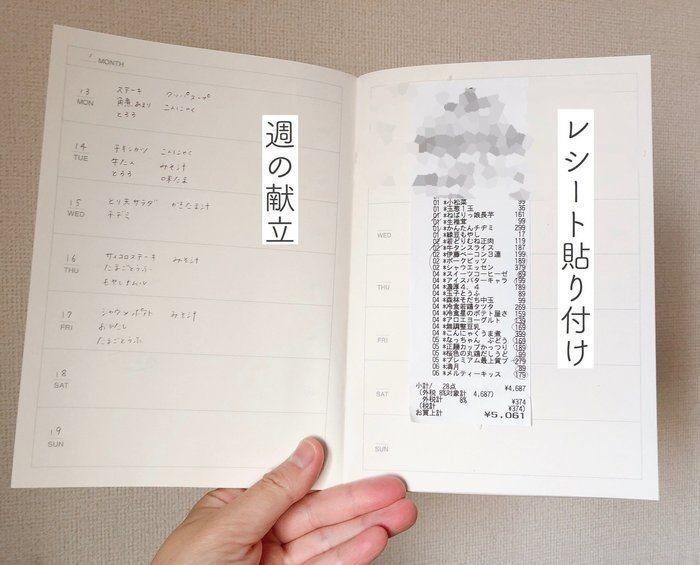 MONTH
13 MON
ステーキ クッパスープ
角煮あまり こんにゃく
とろろ
14 TUE
チキンカツ こんにゃく
牛たん みそ汁
とろろ 味たま
15 WED
とり天サラダ かきたま汁
チヂミ
16 THU
サイコロステーキ みそ汁
たまごとうふ
もやしナムル
17 FRI
シャウ ポテト みそ汁
たまごとうふ
18 SAT
19 SUN
週の献立
レシート貼り付け
WED
THU
FRI
SAT
SUN
01 *小松菜 99
01 *玉葱1玉 36
01 *ねばりっ娘長芋 161
01 *生椎茸 99
01 *かんたんチヂミ 299
01 *緑豆もやし 17
02 *若どりむね正肉 119
02 *牛タンスライス 187
02 *伊藤ベーコン3連 199
02 *ポークビッツ 189
02 *シャウエッセン 379
04 *スイーツコーヒーゼ 69
04 *アイスバターキャラ 199
04 *濃厚4.4 189
04 *玉子とうふ 89
04 *森林そだち中玉 99
04 *冷食若鶏タツタ 269
04 *冷食星のポテト屋さ 159
04 *アロエヨーグルト 139
04 *無調整豆乳 169
04 *こんにゃくうま煮 399
05 *なっちゃん ぶどう 169
05 *正麺カップかっつり 189
05 *桜色の丸鶏だしうど 99
05 *プレミアム最上質プ 279
06 *満月 89
06 *メルティーキッス 179
小計/ 28点 ¥4,687
(外税 8%対象計 4,687)
外税計 8% ¥374
(税計 ¥374)
お買上計 ¥5,061